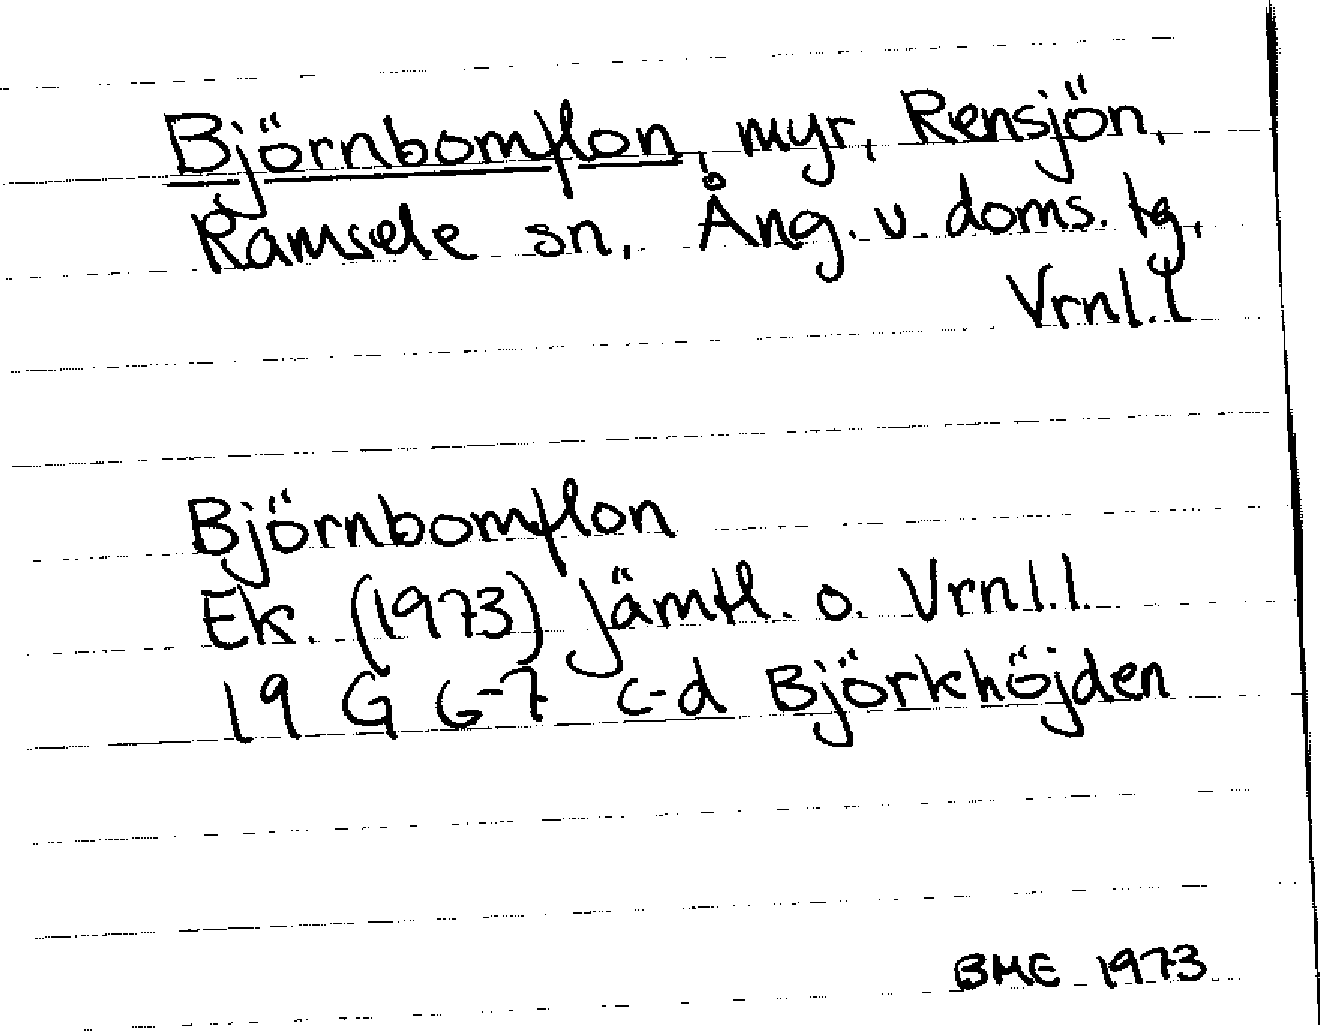 Björnbomflon, myr, Rensjön,
Ramsele sn, Ång. v. doms. tg,
Vrnl.l
Björnbomflon
Ek. (1973) Jämtl. o. Vrnl.l.
19 G 6-7 c-d Björkhöjden
BME 1973